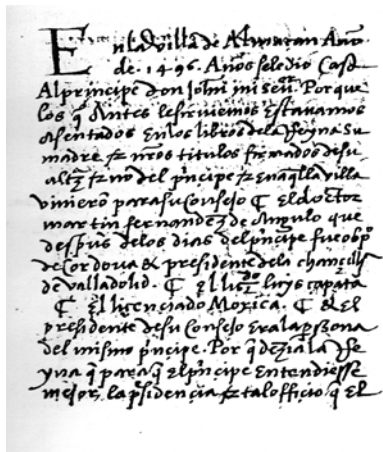 En la villa de Almaçan Año
de .1496. Años se le dio Casa
Al principe don Johan mi señor. Por que
los q̃ Antes le seruiemos Estauamos
Asentados En los libros dela Reyna su
madre & nr̃os titulos firmados de su
altez & no del prĩcipe & En aq̃lla villa
vinierõ para su Consejo ₵ El doctor
martin fernandez de Angulo que
despues delos dias del prĩcipe fue obpõ
de Cordoua & presidente dela chancill
de valladolid. ₵ El licdo luys çapata
₵ El licenciado Moxica. ₵ & El
presidente de su Consejo era la psona
del mismo prĩcipe. Por q̃ dezia la Re
yna q̃ para q̃ El prĩcipe Entendiesse
mejor, la psidencia & tal officio q̃ El